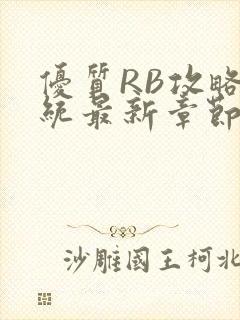 優質RB攻略
統最新章節
沙雕國王柯北